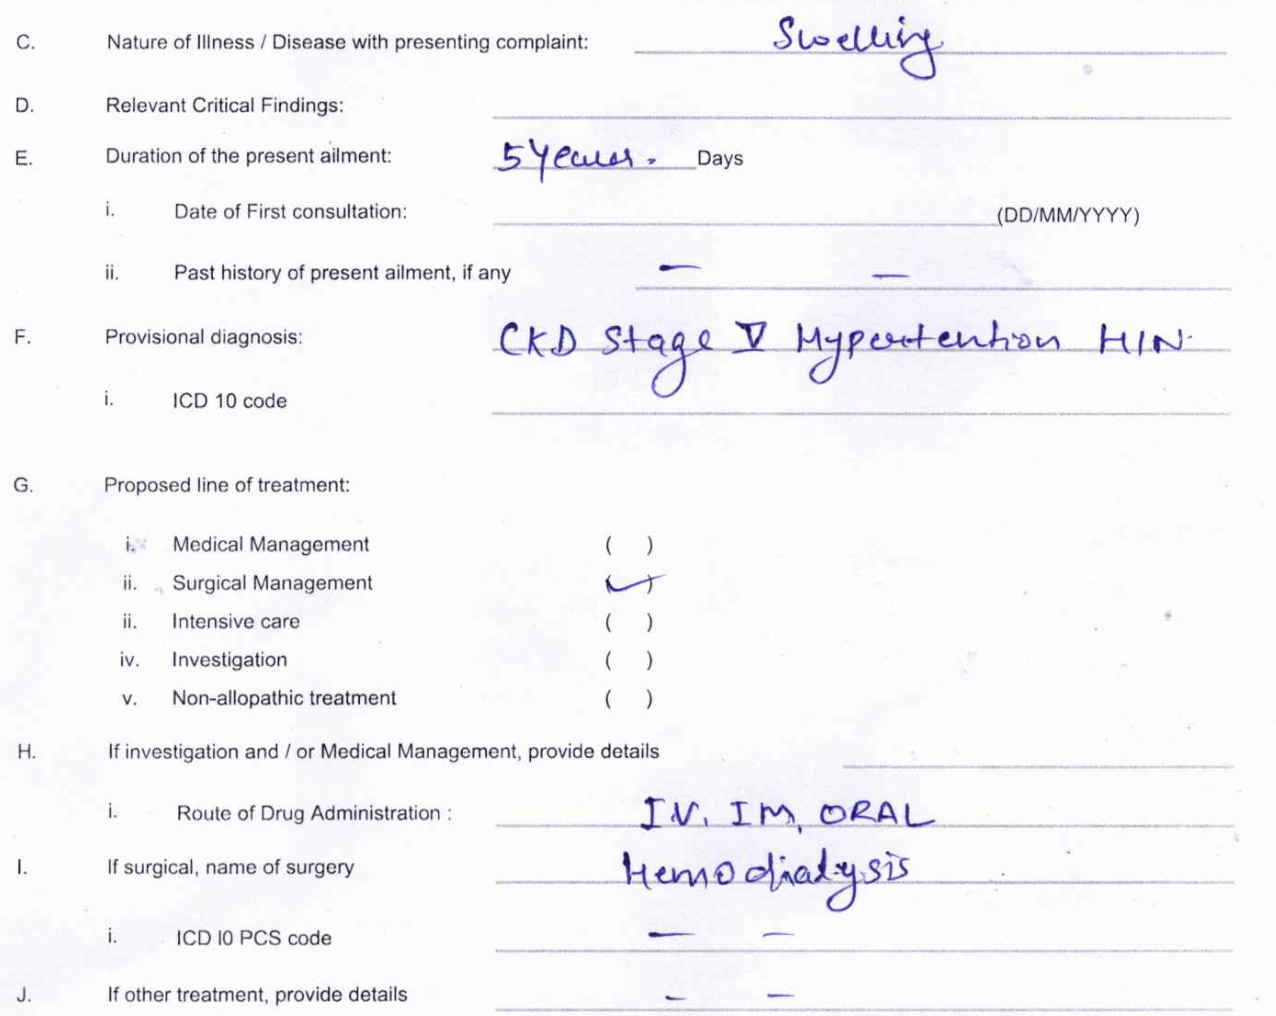 C. Nature of Illness / Disease with presenting complaint: Swelling
D. Relevant Critical Findings:
E. Duration of the present ailment: 5 Years. Days
i. Date of First consultation: (DD/MM/YYYY)
ii. Past history of present ailment, if any — —
F. Provisional diagnosis: CKD Stage V Hypertention HIN
i. ICD 10 code
G. Proposed line of treatment:
i. Medical Management ( )
ii. Surgical Management (✓)
ii. Intensive care ( )
iv. Investigation ( )
v. Non-allopathic treatment ( )
H. If investigation and / or Medical Management, provide details
i. Route of Drug Administration : IV, IM, ORAL
I. If surgical, name of surgery Hemodialysis
i. ICD I0 PCS code — —
J. If other treatment, provide details — —